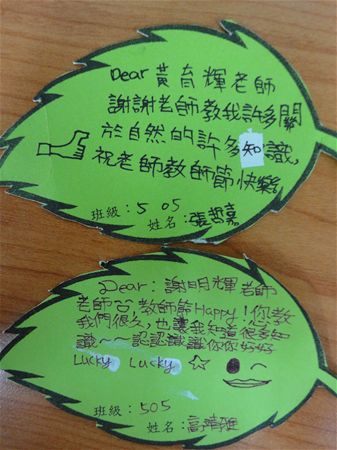 Dear 黃育輝老師
謝謝老師教我許多關
於自然的許多知識,
祝老師教師節快樂
班級:5 05
姓名:張哲嘉
Dear:謝明輝老師
老師 教師節Happy!你教
我們很久,也讓我知道很多知
識~ 認識你 好好
Lucky Lucky ☆
班級:505
姓名:高